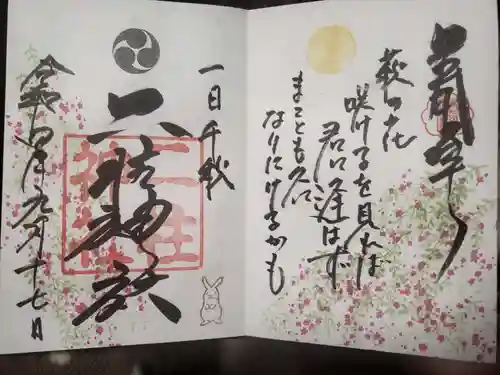 萩の花
咲けるを見れば
君に逢はず
まことも久に
なりにけるかも
一日千
二柱神社
二柱
神社
令和四年九月十七日